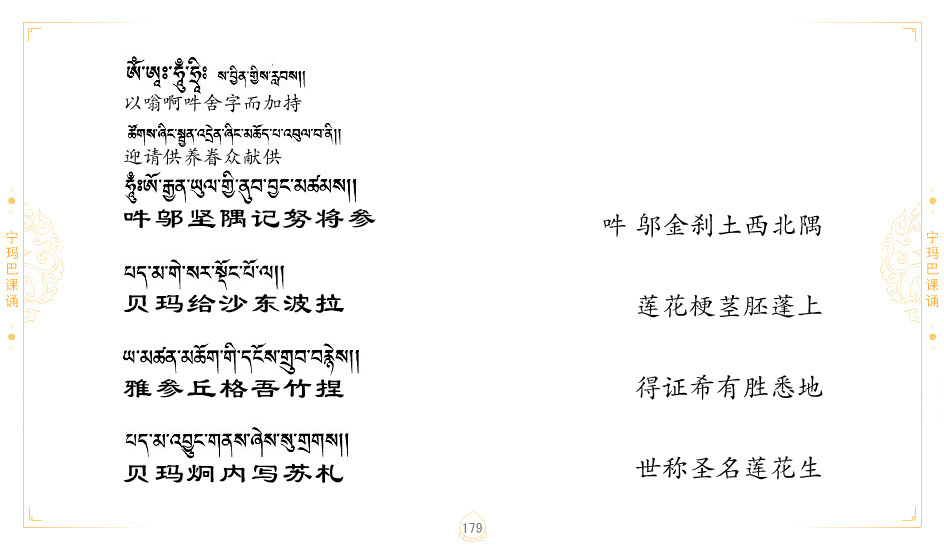 ཨོཾ་ཨཱཿ་ཧཱུྂ་ཧྲཱིཿ ས་བྱིན་གྱིས་རླབས།།
以嗡啊吽舍字而加持
ཚོགས་ཞིང་སྤྱན་འདྲེན་ཞིང་མཆོད་པ་འབུལ་བ་ནི།།
迎请供养眷众献供
ཧཱུྂ༔ཨོ་རྒྱན་ཡུལ་གྱི་ནུབ་བྱང་མཚམས།།
吽邬坚隅记努将参 吽 邬金刹土西北隅
པད་མ་གེ་སར་སྡོང་པོ་ལ།།
贝玛给沙东波拉 莲花梗茎胚蓬上
ཡ་མཚན་མཆོག་གི་དངོས་གྲུབ་བརྙེས།།
雅参丘格吾竹捏 得证希有胜悉地
པད་མ་འབྱུང་གནས་ཞེས་སུ་གྲགས།།
贝玛炯内写苏札 世称圣名莲花生
宁玛巴课诵
宁玛巴课诵
179